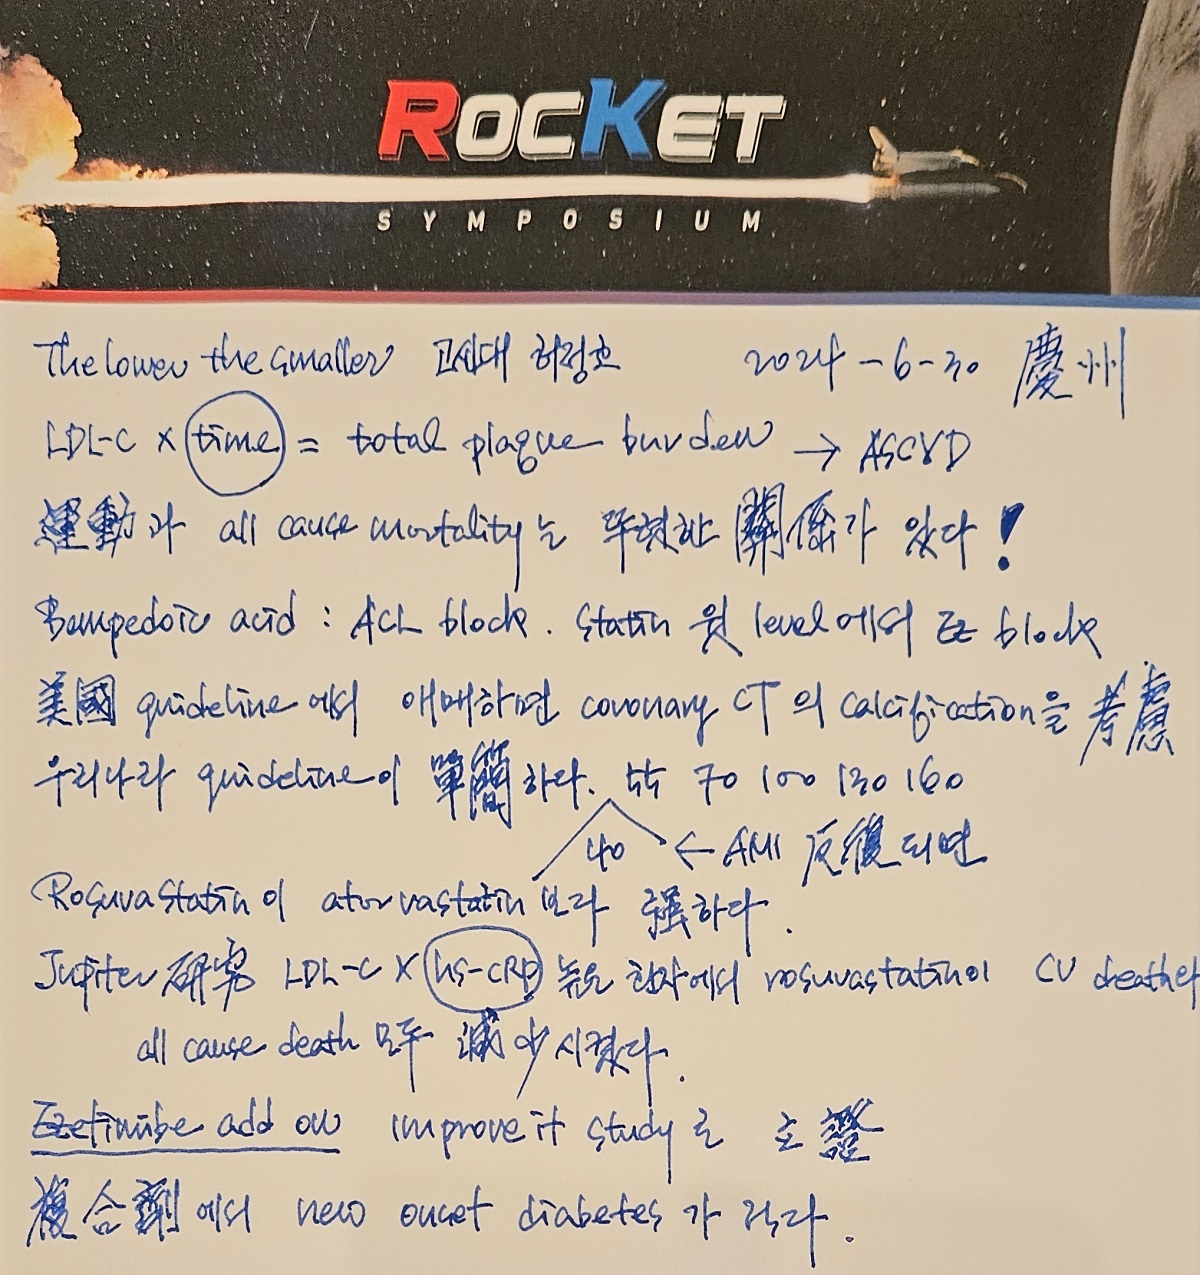 ROCKET
SYMPOSIUM
The lower the smaller 고신대 허정호 2024-6-30 慶州
LDL-C × time = total plaque burden → ASCVD
運動과 all cause mortality는 뚜렷한 關係가 있다!
Bempedoic acid : ACL block. Statin 윗 level에서 Ez block
美國 guideline에서 애매하면 coronary CT의 calcification을 考慮
우리나라 guideline이 單簡하다. 55 70 100 130 160
40 ← AMI 反復되면
Rosuvastatin이 atorvastatin보다 强하다.
Jupiter 硏究 LDL-C × hs-CRP 높은 환자에서 rosuvastatin이 CV death
all cause death 모두 減少시켰다.
Ezetimibe add on improve it study로 立證
複合劑에서 new onset diabetes가 적다.